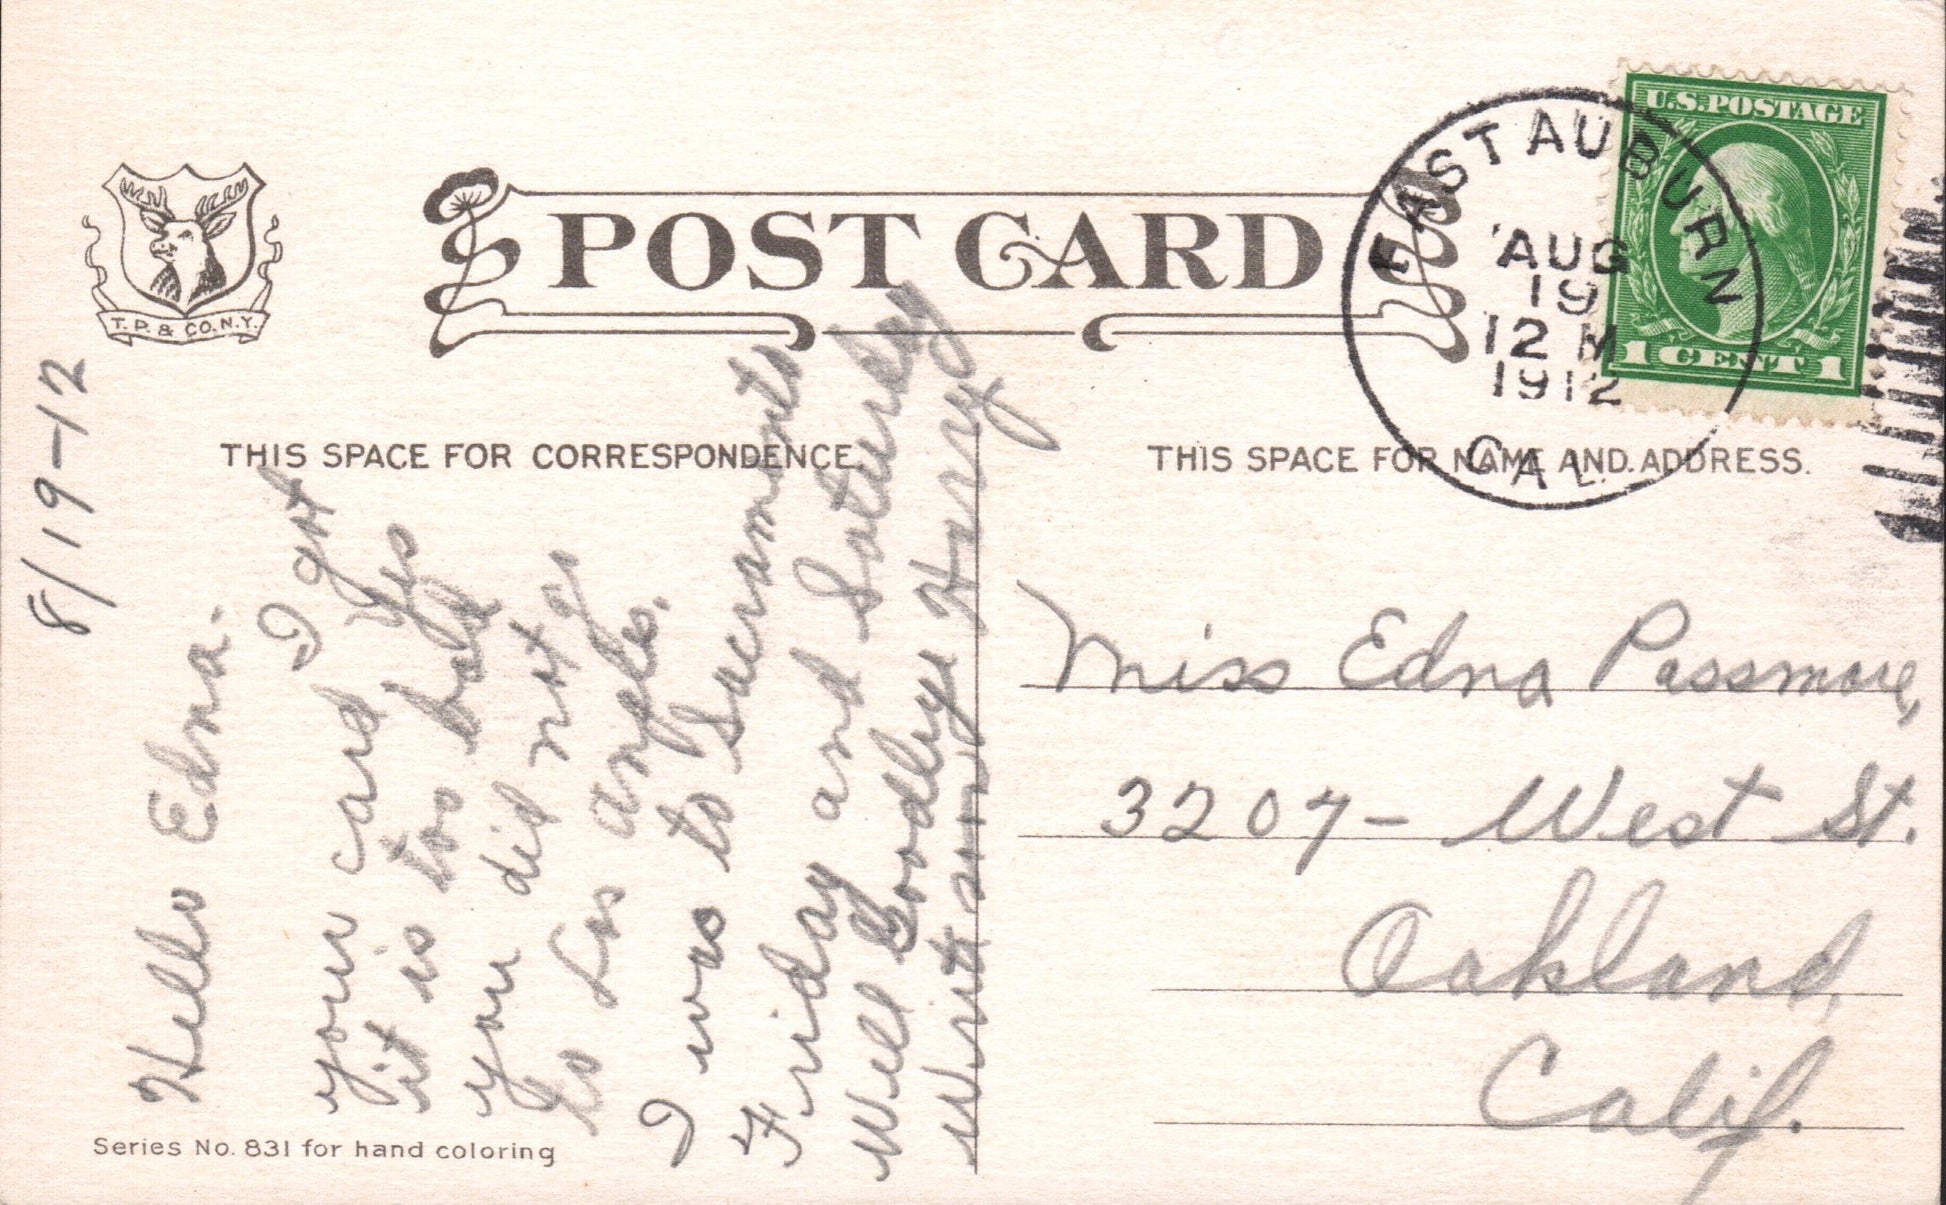 T. P. & CO. N.Y.
POST CARD
EAST AUBURN
AUG
19
12 M
1912
CAL.
U.S. POSTAGE
1 CENT 1
THIS SPACE FOR CORRESPONDENCE
THIS SPACE FOR NAME AND ADDRESS.
8/19-12
Hello Edna.
I got
your card Yes
it is too bad
you did not go
to Los Angles.
I was to Sacramento
Friday and Saturday
Well Goodbye Harry
Write soon
Miss Edna Passmore,
3207 - West St.
Oakland,
Calif.
Series No. 831 for hand coloring